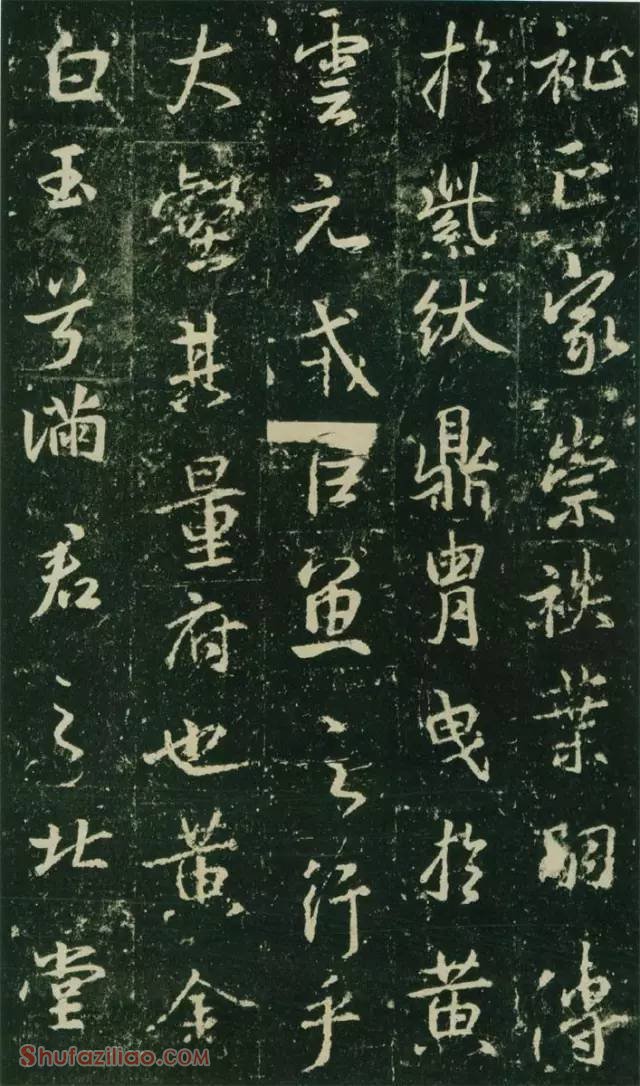 祉正家崇袟葉嗣傳
於紫紱鼎胄曳於黃
雲元戎巨魚之行乎
大壑其量府也黃金
白玉兮滿君之北堂
Shufaziliao.COM